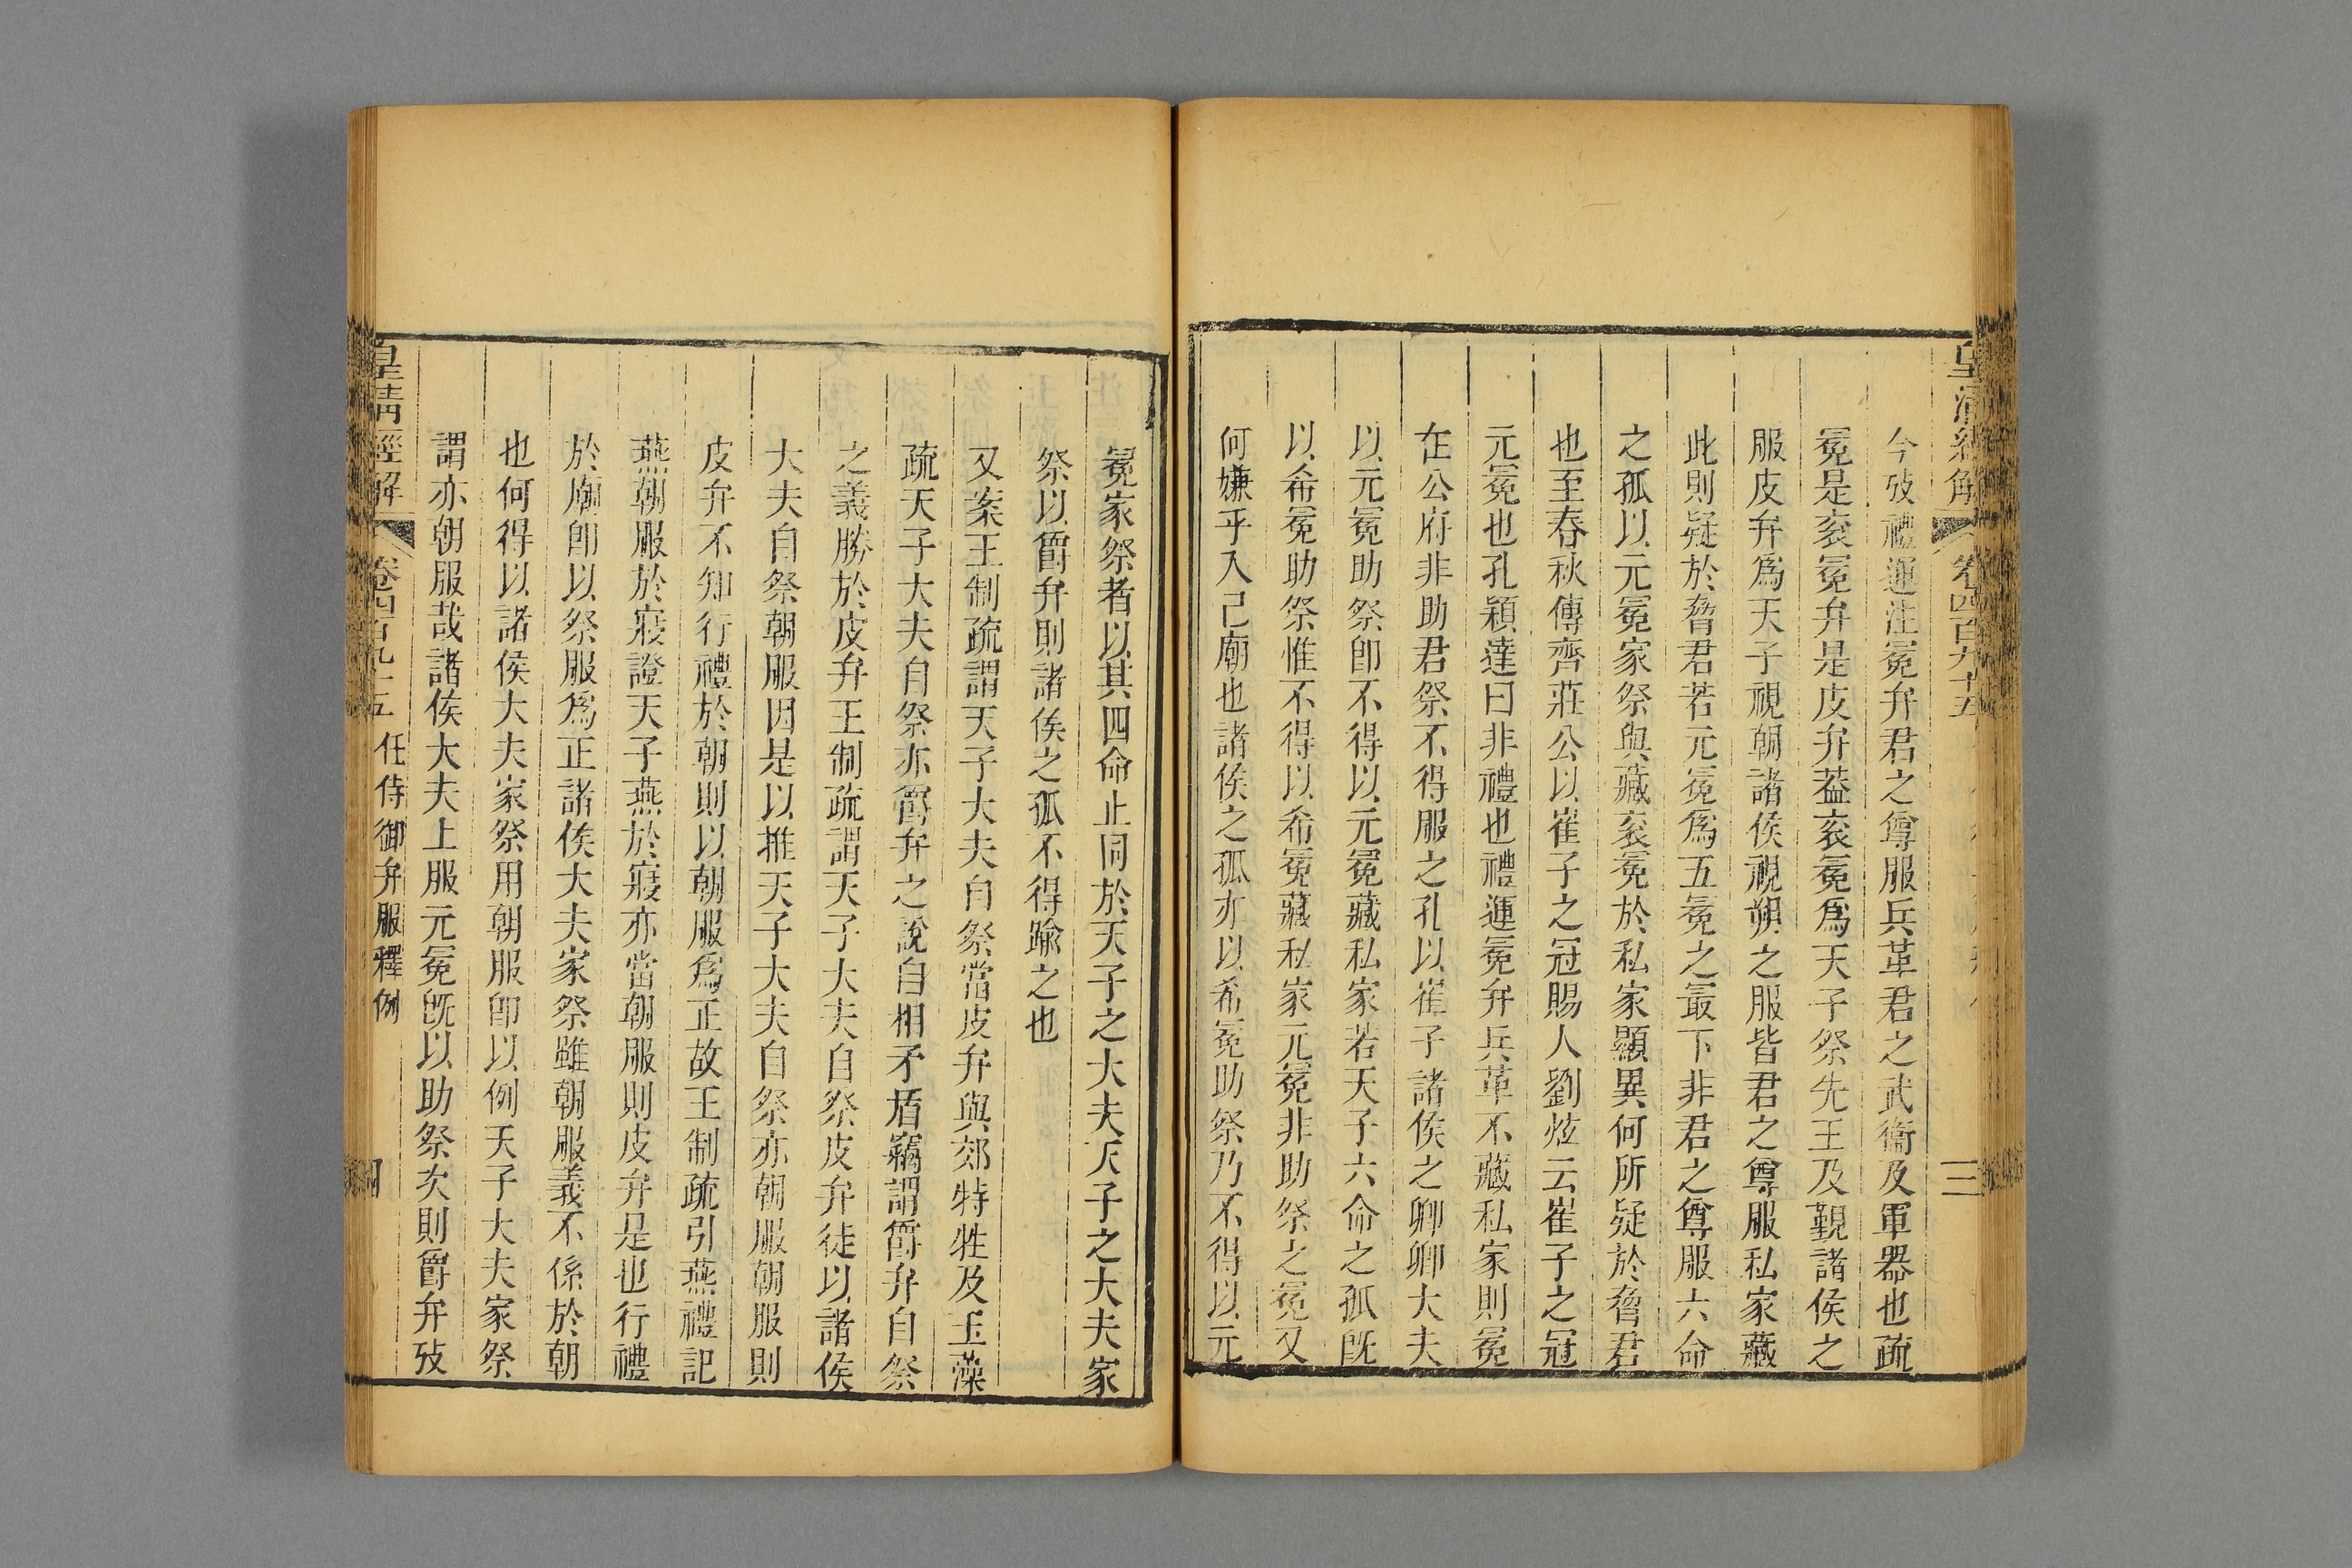 皇清經解
卷四百九十五
三
今攷禮運注冕弁君之尊服兵革君之武衞及軍器也疏
冕是衮冕弁是皮弁葢衮冕爲天子祭先王及覲諸侯之
服皮弁爲天子視朝諸侯視朔之服皆君之尊服私家藏
此則疑於脅君若元冕爲五冕之最下非君之尊服六命
之孤以元冕家祭與藏衮冕於私家顯異何所疑於脅君
也至春秋傳齊莊公以崔子之冠賜人劉炫云崔子之冠
元冕也孔穎達曰非禮也禮運冕弁兵革不藏私家則冕
在公府非助君祭不得服之孔以崔子諸侯之卿卿大夫
以元冕助祭卽不得以元冕藏私家若天子六命之孤旣
以希冕助祭惟不得以希冕藏私家元冕非助祭之冕又
何嫌乎入己廟也諸侯之孤亦以希冕助祭乃不得以元
冕家祭者以其四命止同於天子之大夫天子之大夫家
祭以爵弁則諸侯之孤不得踰之也
又案王制疏謂天子大夫自祭當皮弁與郊特牲及玉藻
疏天子大夫自祭亦爵弁之說自相矛盾竊謂爵弁自祭
之義勝於皮弁王制疏謂天子大夫自祭皮弁徒以諸侯
大夫自祭朝服因是以推天子大夫自祭亦朝服朝服則
皮弁不知行禮於朝則以朝服爲正故王制疏引燕禮記
燕朝服於寢證天子燕於寢亦當朝服則皮弁是也行禮
於廟卽以祭服爲正諸侯大夫家祭雖朝服義不係於朝
也何得以諸侯大夫家祭用朝服卽以例天子大夫家祭
謂亦朝服哉諸侯大夫上服元冕旣以助祭次則爵弁攷
皇清經解
卷四百九十五
任侍御弁服釋例
四